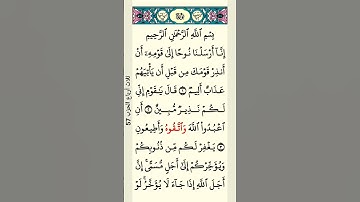 بِسْمِ ٱللَّهِ ٱلرَّحْمَٰنِ ٱلرَّحِيمِ
إِنَّآ أَرْسَلْنَا نُوحًا إِلَىٰ قَوْمِهِۦٓ أَنْ
أَنذِرْ قَوْمَكَ مِن قَبْلِ أَن يَأْتِيَهُمْ
عَذَابٌ أَلِيمٌ ۝١ قَالَ يَٰقَوْمِ إِنِّى
لَكُمْ نَذِيرٌ مُّبِينٌ ۝٢ أَنِ
ٱعْبُدُوا۟ ٱللَّهَ وَٱتَّقُوهُ وَأَطِيعُونِ
۝٣ يَغْفِرْ لَكُم مِّن ذُنُوبِكُمْ
وَيُؤَخِّرْكُمْ إِلَىٰٓ أَجَلٍ مُّسَمًّى إِنَّ
أَجَلَ ٱللَّهِ إِذَا جَآءَ لَا يُؤَخَّرُ لَوْ
ثلاث أرباع الحزب 57